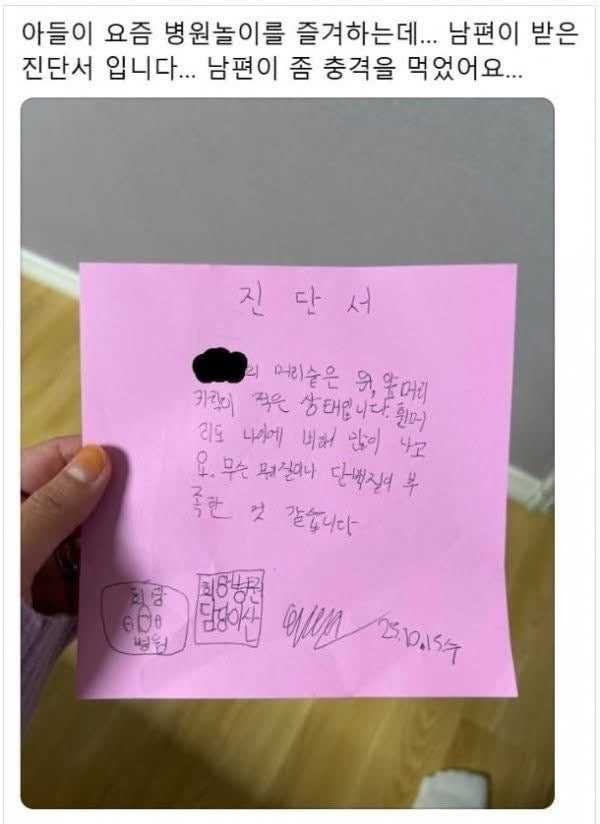 아들이 요즘 병원놀이를 즐겨하는데... 남편이 받은
진단서 입니다... 남편이 좀 충격을 먹었어요...
진 단 서
의 머리숱은 위, 옆머리
카락이 적은 상태입니다. 흰머
리도 나이에 비해 많이 나고
요. 무슨 단백질이 부
족한 것 같습니다
희망
병원
희망병원
25.10.15수